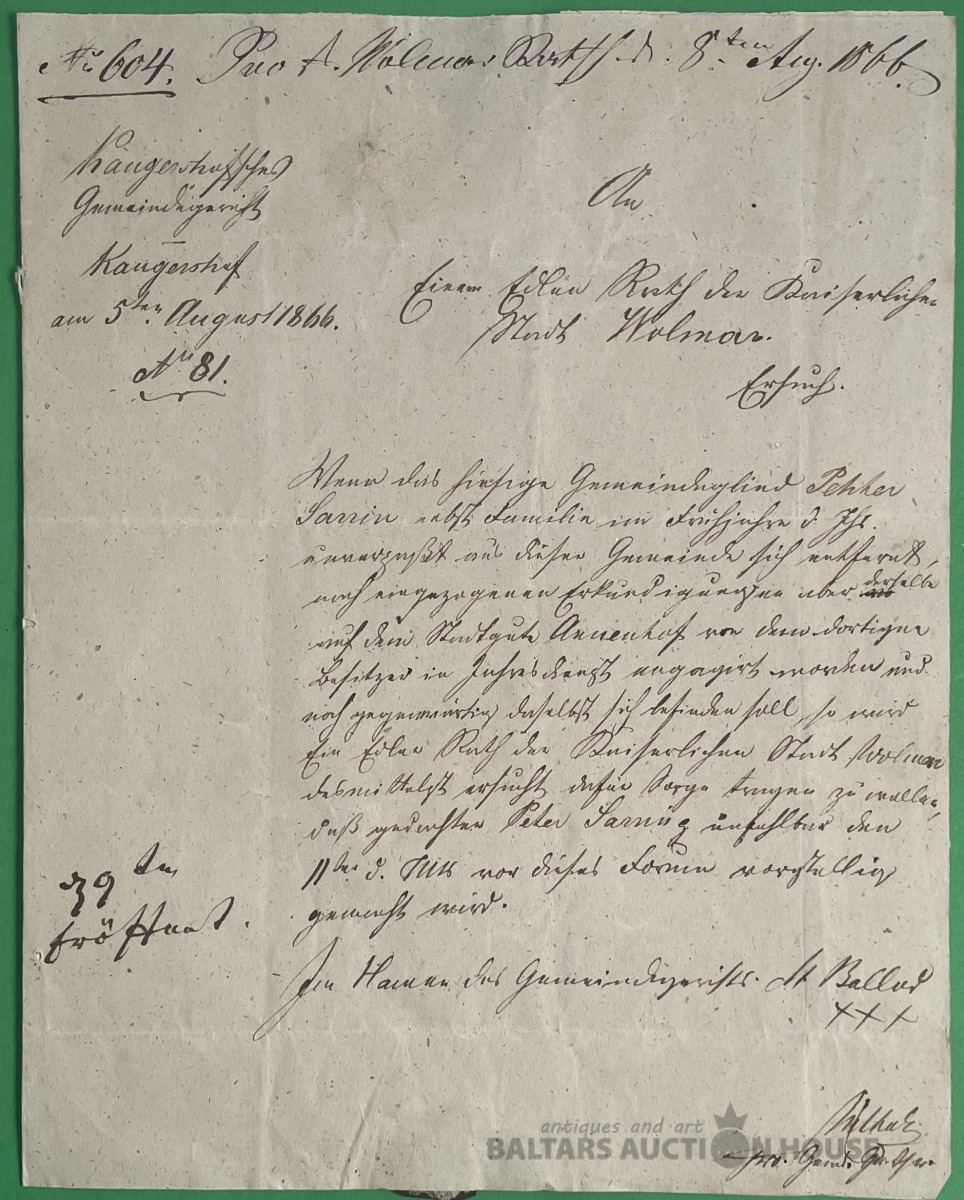 No 604. Pro t. Wolmar Rath d. 8ten Aug. 1866.
Kaugershofsches
Gemeindegericht
Kaugershof
am 5ten August 1866.
No 81.
An
Einem Edlen Rath der Kaiserlichen
Stadt Wolmar.
Ersuch.
Wenn das hiesige Gemeindeglied Pehter
Sarrin nebst Familie im Frühjahre d. Jhs.
unverpaßt aus dieser Gemeinde sich entfernt,
nach eingezogenen Erkundigungen aber derselbe
auf dem Stadtgute Annenhof von dem dortigen
Besitzer in Jahresdienst engagirt worden und
noch gegenwärtig daselbst sich befinden soll, so wird
Ein Edler Rath der Kaiserlichen Stadt Wolmar
desmittelst ersucht dafür Sorge tragen zu wollen,
daß gedachter Peter Sarring unfehlbar den
11ten d. Mts vor dieses Forum vorstellig
gemacht wird.
d 9ten
eröffnet.
Im Namen des Gemeindegerichts. M Ballod
+++
antiques and art
BALTARS AUCTION HOUSE